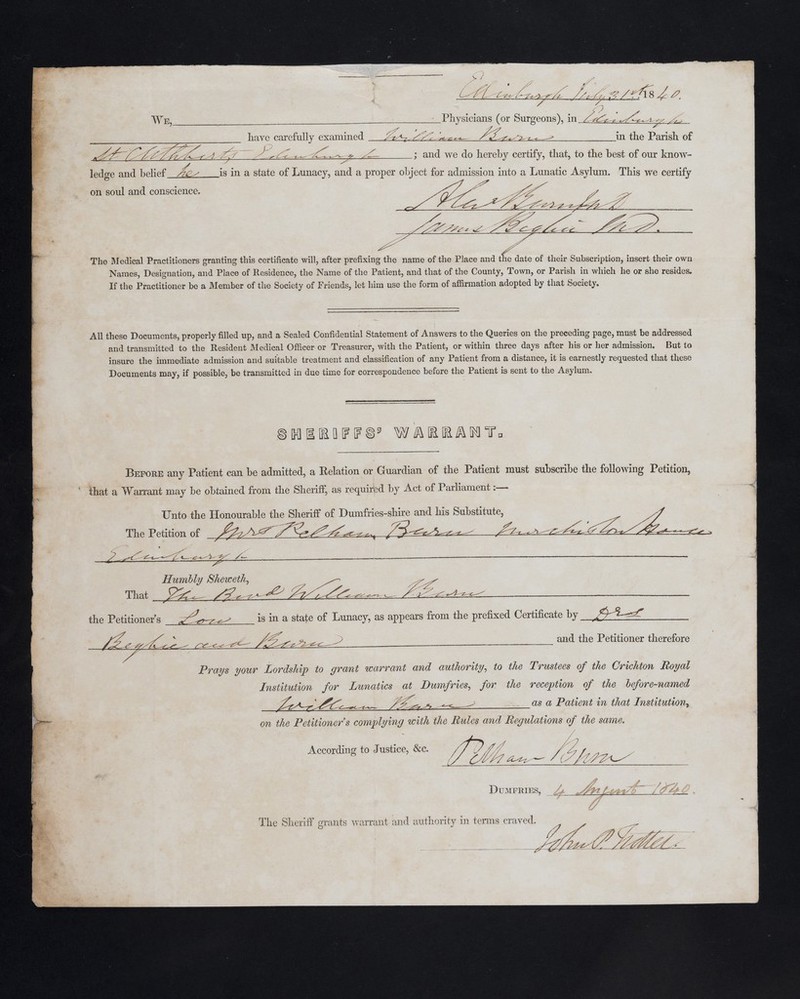 Edinburgh July 31st 1840.
WE, Physicians (or Surgeons), in Edinburgh
have carefully examined William Burn in the Parish of
St Cuthberts Edinburgh ; and we do hereby certify, that, to the best of our know-
ledge and belief he is in a state of Lunacy, and a proper object for admission into a Lunatic Asylum. This we certify
on soul and conscience.
Alexr Burn M D
James Begbie M.D.
The Medical Practitioners granting this certificate will, after prefixing the name of the Place and the date of their Subscription, insert their own
Names, Designation, and Place of Residence, the Name of the Patient, and that of the County, Town, or Parish in which he or she resides.
If the Practitioner be a Member of the Society of Friends, let him use the form of affirmation adopted by that Society.
All these Documents, properly filled up, and a Sealed Confidential Statement of Answers to the Queries on the preceding page, must be addressed
and transmitted to the Resident Medical Officer or Treasurer, with the Patient, or within three days after his or her admission. But to
insure the immediate admission and suitable treatment and classification of any Patient from a distance, it is earnestly requested that these
Documents may, if possible, be transmitted in due time for correspondence before the Patient is sent to the Asylum.
SHERIFFS' WARRANT.
BEFORE any Patient can be admitted, a Relation or Guardian of the Patient must subscribe the following Petition,
that a Warrant may be obtained from the Sheriff, as required by Act of Parliament:—
Unto the Honourable the Sheriff of Dumfries-shire and his Substitute,
The Petition of Mrs Pelham Burn Merchiston House
Edinburgh
Humbly Sheweth,
That The Revd William Burn
the Petitioner's Son is in a state of Lunacy, as appears from the prefixed Certificate by Drs
Begbie and Burn and the Petitioner therefore
Prays your Lordship to grant warrant and authority, to the Trustees of the Crichton Royal
Institution for Lunatics at Dumfries, for the reception of the before-named
William Burn as a Patient in that Institution,
on the Petitioner's complying with the Rules and Regulations of the same.
According to Justice, &c. Pelham Burn
DUMFRIES, 4 August 1840.
The Sheriff grants warrant and authority in terms craved.
John P. Trotter.